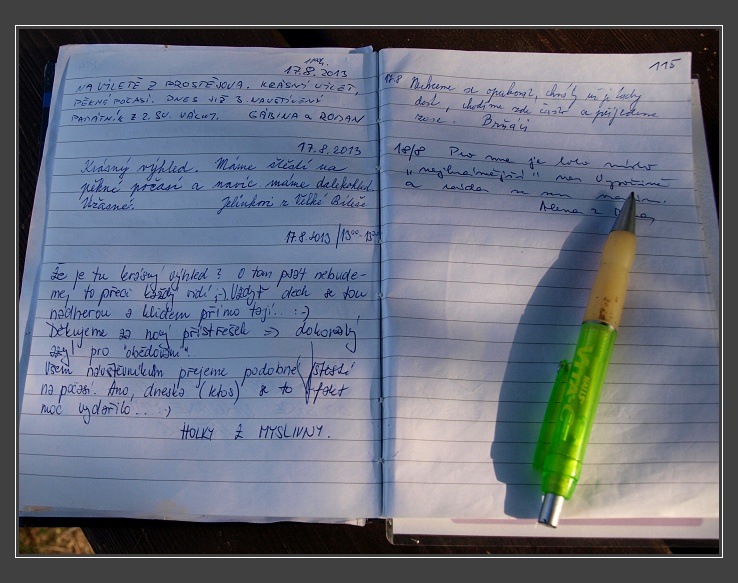 17.8. 2013
NA VÝLETĚ Z PROSTĚJOVA. KRÁSNÝ VÝLET,
PĚKNÉ POČASÍ. DNES JIŽ 3. NAVŠTÍVENÝ
PAMÁTNÍK Z 2. SV. VÁLKY. GÁBINA a ROMAN
17.8.2013
Krásný výhled. Máme štěstí na
pěkné počasí a navíc máme dalekohled.
Úžasné. Jelínkovi z Velké Bíteše
17.8.2013 / 13
Že je tu krásný výhled? O tom psát nebude-
me, to přeci každý vidí ;-) Vždyť dech se tou
nádherou a klidem přímo tají.. :-)
Děkujeme za nový přístřešek => dokonalý
azyl pro "obědování".
Všem návštěvníkům přejeme podobné štěstí
na počasí. Ano, dneska (letos) se to fakt
moc vydařilo... :)
HOLKY Z MYSLIVNY.
115
17.8 Nechceme se opakovat, chvály už je tady
dost, chodíme sem často a přijedeme
zase.
18/8 Pro mne je toto místo
"nejkrásnější" na
a
Alena z